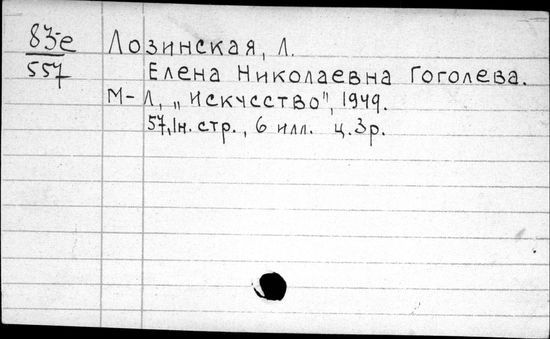 83-е Лозинская, Л.
557 Елена Николаевна Гоголева.
М-Л, „Искусство", 1949.
57,1н. стр., 6 илл. ц.3р.